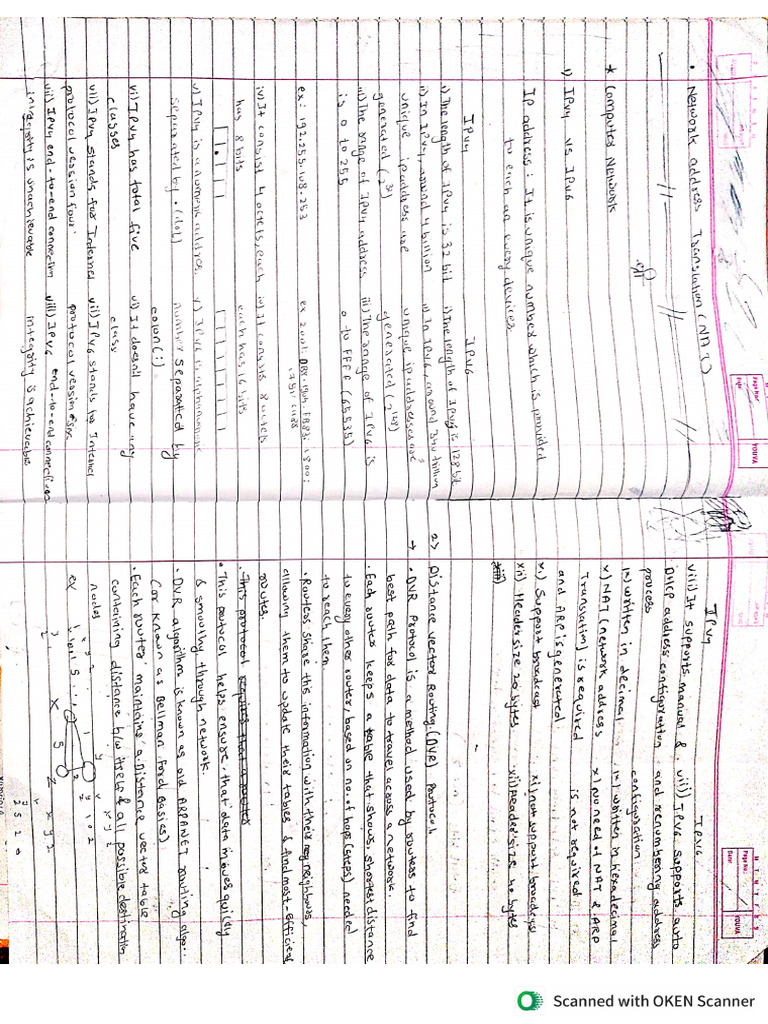 • Network address Translation (NAT)
* Computer Network
1) IPv4 vs IPv6
IP address : It is unique number which is provided
to each an every devices.
IPv4 IPv6
i) The length of IPv4 is 32 bit i) The length of IPv6 is 128 bit
ii) In IPv4, around 4 billion ii) In IPv6, around 340 trillion
unique ip address are unique ip addresses are
generated (2³²) generated (2¹²⁸)
iii) The range of IPv4 address iii) The range of IPv6 is
is 0 to 255 0 to FFFF (65535)
ex: 192.255.108.253 ex 2001:
iv) It consist 4 octets, each iv) It consists 8 octets
has 8 bits each has 16 bits
v) IPv4 is a numeric address v) IPv6 is alphanumeric
separated by .(dot) number separated by
colon(:)
vi) IPv4 has total five vi) It doesn't have any
classes class
vii) IPv4 stands for Internet vii) IPv6 stands for Internet
protocol version four. protocol version
viii) IPv4 end-to-end connection viii) IPv6 end-to-end connection
integrity is unachievable integrity is achievable
Page No.:
Date:
YOUVA
IPv4 IPv6
viii) It supports manual & viii) IPv6 supports auto
DHCP address configuration and renumbering address
process configuration
ix) written in decimal ix) written in hexadecimal
x) NAT (network address x) No need of NAT & ARP
Translation) is required is not required.
and ARP is generated.
xi) Support broadcast xi) not support broadcast
xii) Header size 20 bytes xii) Header size 40 bytes
2) Distance vector Routing (DVR) Protocol
→ • DVR Protocol is a method used by routers to find
best path for data to travel across a network.
• Each router keeps a table that shows, shortest distance
to every other router, based on no. of hops (steps) needed
to reach them.
• Routers share this information with their neighbours,
allowing them to update their tables & find most-efficient
routes.
• This protocol requires that a router
• This protocol helps ensure, that data moves quickly
& smoothly through network.
• DVR algorithm is known as old ARPANET routing algo..
(or known as Bellman Ford Basics)
• Each router maintains a Distance vector table
containing distance b/w itself & all possible destination
nodes
ex
x y z
x y z
y 1 0 2
X 5 Z x y z
z 5 2 0
M T W T F S S
Page No.:
Date:
YOUVA
Scanned with OKEN Scanner